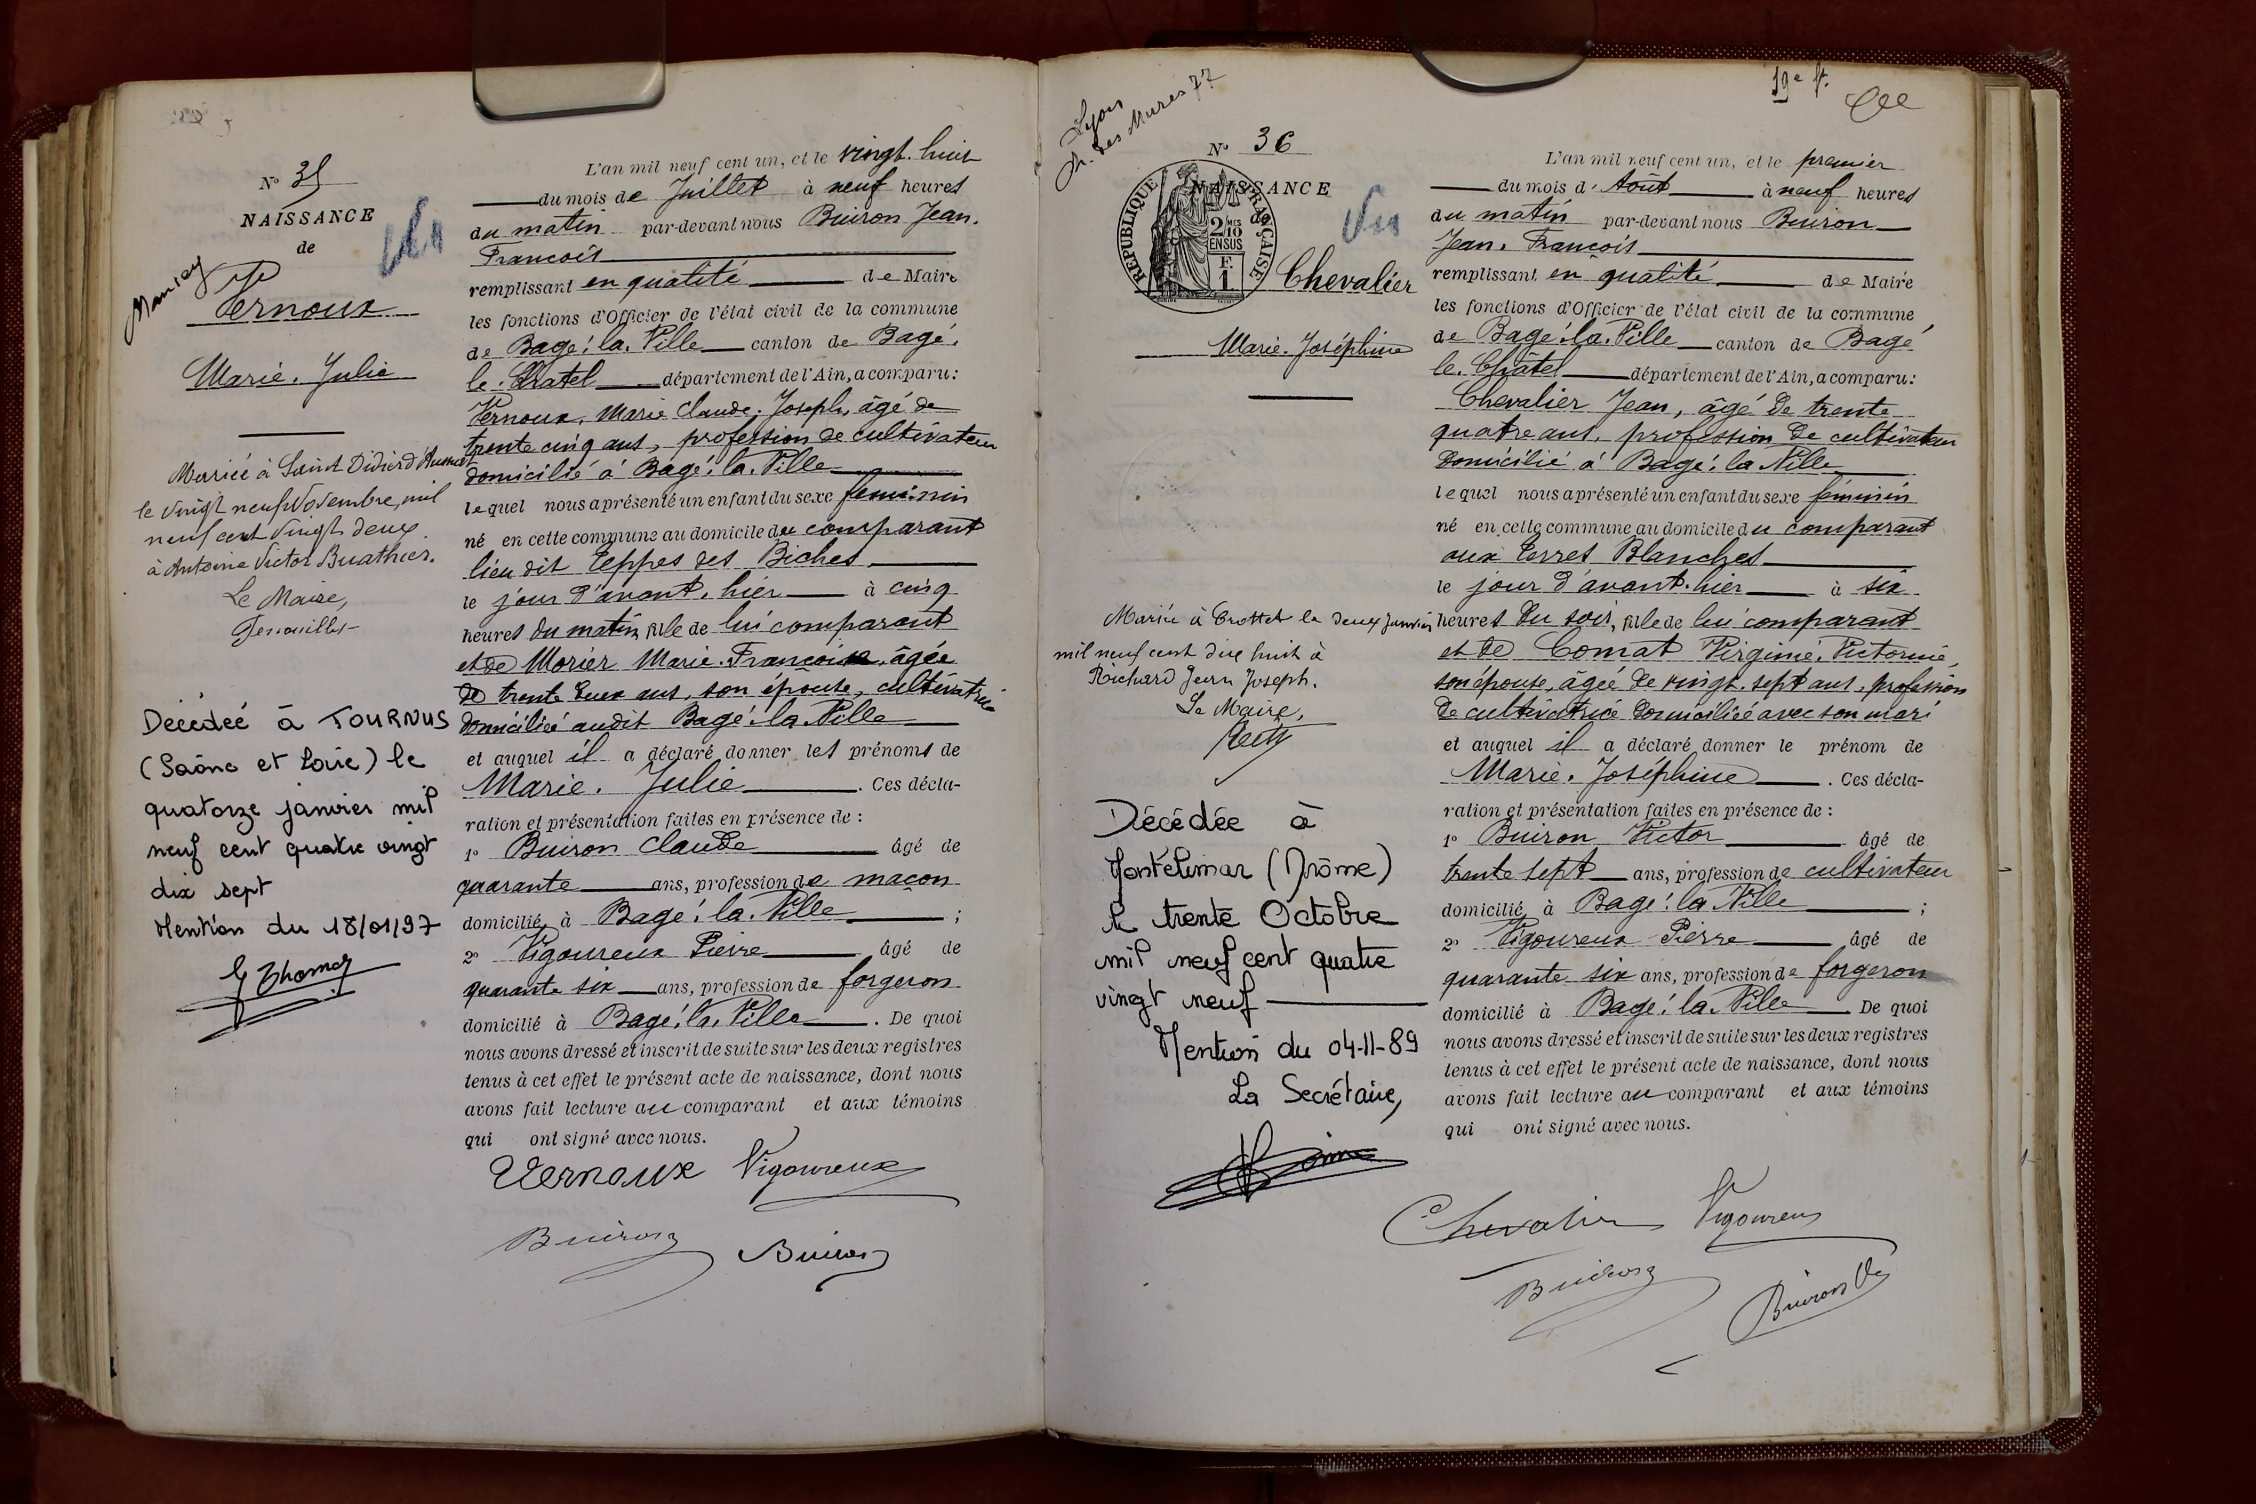 N° 35
NAISSANCE
de
Vernoux
Marie. Julie
Mariée à Saint Didier d'Aussiat
le vingt neuf Novembre, mil
neuf cent vingt deux
à Antoine Victor Buathier.
Le Maire,
Décédée à TOURNUS
(Saône et Loire) le
quatorze janvier mil
neuf cent quatre vingt
dix sept
Mention du 18/01/97
L'an mil neuf cent un, et le vingt. huit
du mois de Juillet à neuf heures
du matin par-devant nous Buiron Jean.
François
remplissant en qualité de Maire
les fonctions d'Officier de l'état civil de la commune
de Bagé. la. Ville canton de Bagé.
le. Chatel département de l'Ain, a comparu:
Vernoux, Marie Claude. Joseph, âgé de
trente cinq ans, profession de cultivateur
domicilié à Bagé. la. Ville
lequel nous a présenté un enfant du sexe feminin
né en cette commune au domicile du comparant
lieu dit Teppes des Biches
le jour d'avant. hier à cinq
heures du matin, fille de lui comparant
et de Morier Marie. Françoise, âgée
de trente deux ans, son épouse, cultivatrice
domiciliée audit Bagé. la Ville
et auquel il a déclaré donner les prénoms de
Marie. Julie. Ces décla-
ration et présentation faites en présence de :
1° Buiron Claude âgé de
quarante ans, profession de maçon
domicilié à Bagé. la. Ville ;
2° Vigoureux Pierre âgé de
quarante six ans, profession de forgeron
domicilié à Bagé. la. Ville. De quoi
nous avons dressé et inscrit de suite sur les deux registres
tenus à cet effet le présent acte de naissance, dont nous
avons fait lecture au comparant et aux témoins
qui ont signé avec nous.
Vernoux Vigoureux
Buiron Buiron
Lyon
N° 36
NAISSANCE
de
RÉPUBLIQUE FRANÇAISE
2/10
EN SUS
F.
1
Vu
Chevalier
Marie. Joséphine
Mariée à Crottet le deux Janvier
mil neuf cent dix huit à
Richard Jean Joseph.
Le Maire,
Décédée à
Montélimar (Drôme)
le trente Octobre
mil neuf cent quatre
vingt neuf
Mention du 04-11-89
La Secrétaire,
19e f.
L'an mil neuf cent un, et le premier
du mois d'Août à neuf heures
du matin par-devant nous Buiron
Jean. François
remplissant en qualité de Maire
les fonctions d'Officier de l'état civil de la commune
de Bagé. la. Ville canton de Bagé
le. Châtel département de l'Ain, a comparu:
Chevalier Jean, âgé de trente
quatre ans, profession de cultivateur
domicilié à Bagé. la Ville
lequel nous a présenté un enfant du sexe féminin
né en cette commune au domicile du comparant
aux Terres Blanches
le jour d'avant. hier à six
heures du soir, fille de lui comparant
et de Comat Virginie. Victorine,
son épouse, âgée de vingt. sept ans, profession
de cultivatrice domiciliée avec son mari
et auquel il a déclaré donner le prénom de
Marie. Joséphine. Ces décla-
ration et présentation faites en présence de :
1° Buiron Victor âgé de
trente sept ans, profession de cultivateur
domicilié à Bagé. la Ville ;
2° Vigoureux Pierre âgé de
quarante six ans, profession de forgeron
domicilié à Bagé. la. Ville De quoi
nous avons dressé et inscrit de suite sur les deux registres
tenus à cet effet le présent acte de naissance, dont nous
avons fait lecture au comparant et aux témoins
qui ont signé avec nous.
Chevalier Vigoureux
Buiron Buiron Vr